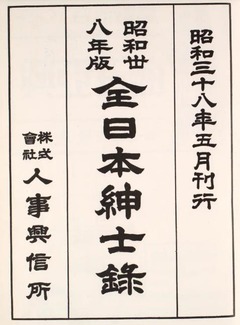 昭和三十八年五月刊行
昭和卅
八年版
全日本紳士錄
株式
會社
人事興信所